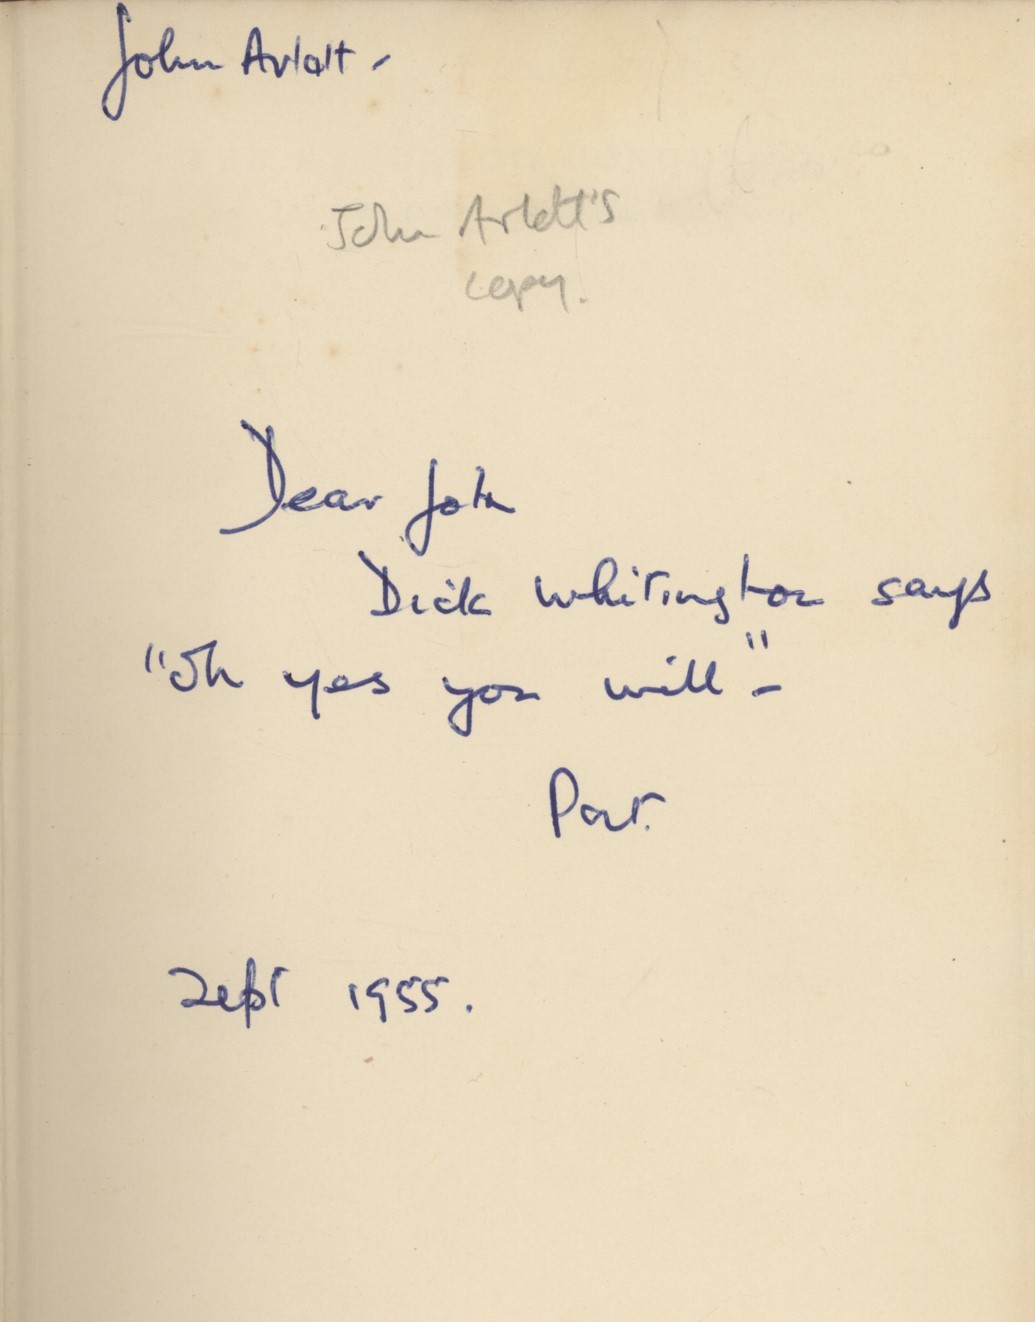 John Arlott -
John Arlott's
copy.
Dear John
Dick Whitington says
"Oh yes you will" -
Pat.
Sept 1955.